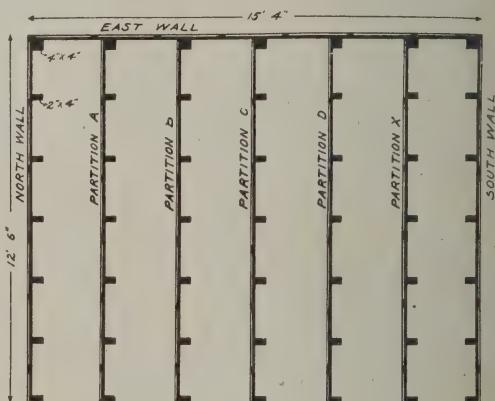 15' 4"
EAST WALL
4"x 4"
2"x 4"
NORTH WALL
PARTITION A
PARTITION b
PARTITION C
PARTITION D
PARTITION X
SOUTH WALL
12' 6"